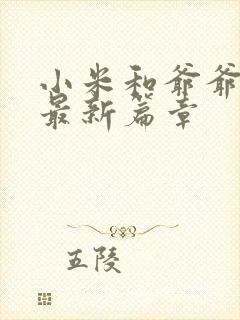 小米和爷爷
最新篇章
五陵